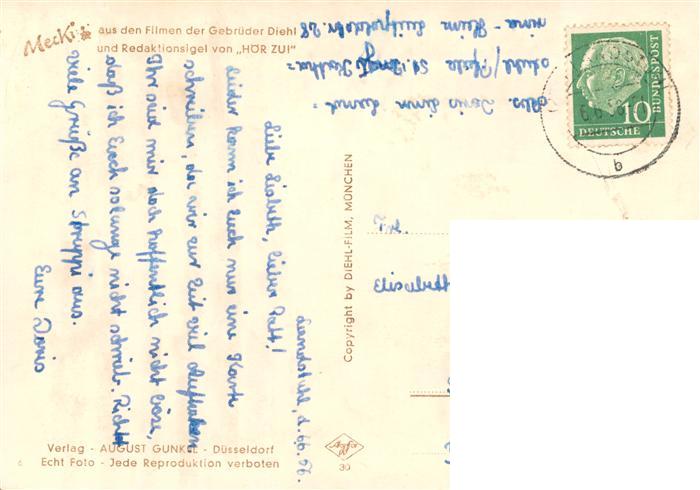 Mecki
aus den Filmen der Gebrüder Diehl
und Redaktionsigel von „HÖR ZU!"
Landstuhl, d. 6.6.56.
Liebe Lisbeth, lieber Patt!
Leider kann ich Euch nur eine Karte
schreiben, da wir zur Zeit viel aufhaben
Ihr seid mir doch hoffentlich nicht böse,
daß ich Euch solange nicht schrieb. Richtet
viele Grüße an Struppi aus.
Eure Doris
Abs. Doris
stuhl/Pfalz St.
Copyright by DIEHL-FILM, MÜNCHEN
DEUTSCHE
BUNDESPOST
10
b
Frl.
Elisabeth
Verlag - AUGUST GUNKEL - Düsseldorf
Echt Foto - Jede Reproduktion verboten
Agfa
30